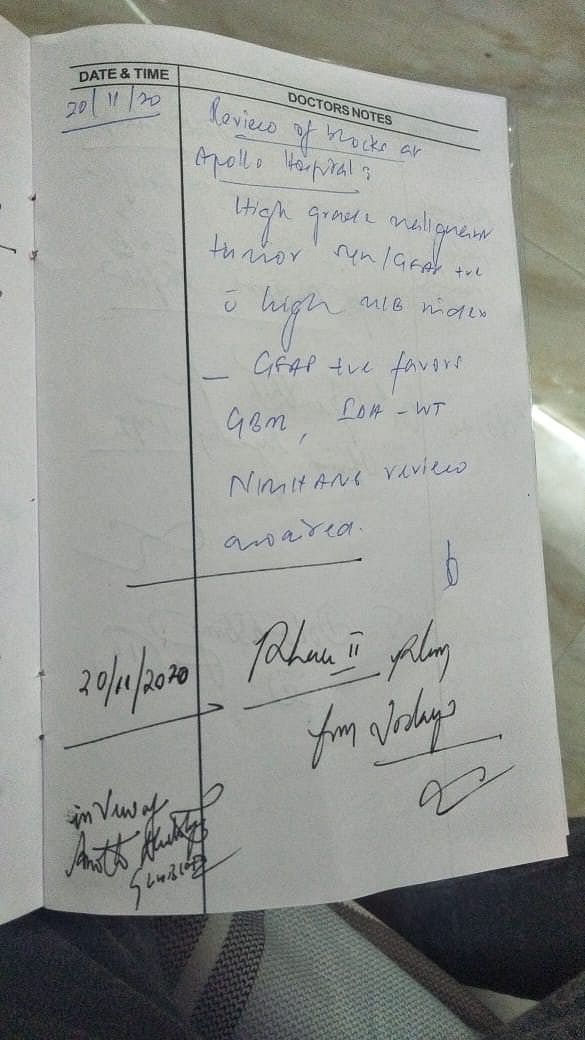 DATE & TIME
DOCTORS NOTES
20/11/20
Review of blocks at
Apollo Hospital:
High grade malignant
tumor syn/GFAP +ve
c̄ high MIB index
– GFAP +ve favors
GBM, IDH – WT
NIMHANS review
awaited.
20/11/2020
Phase II plan
from today
in view of